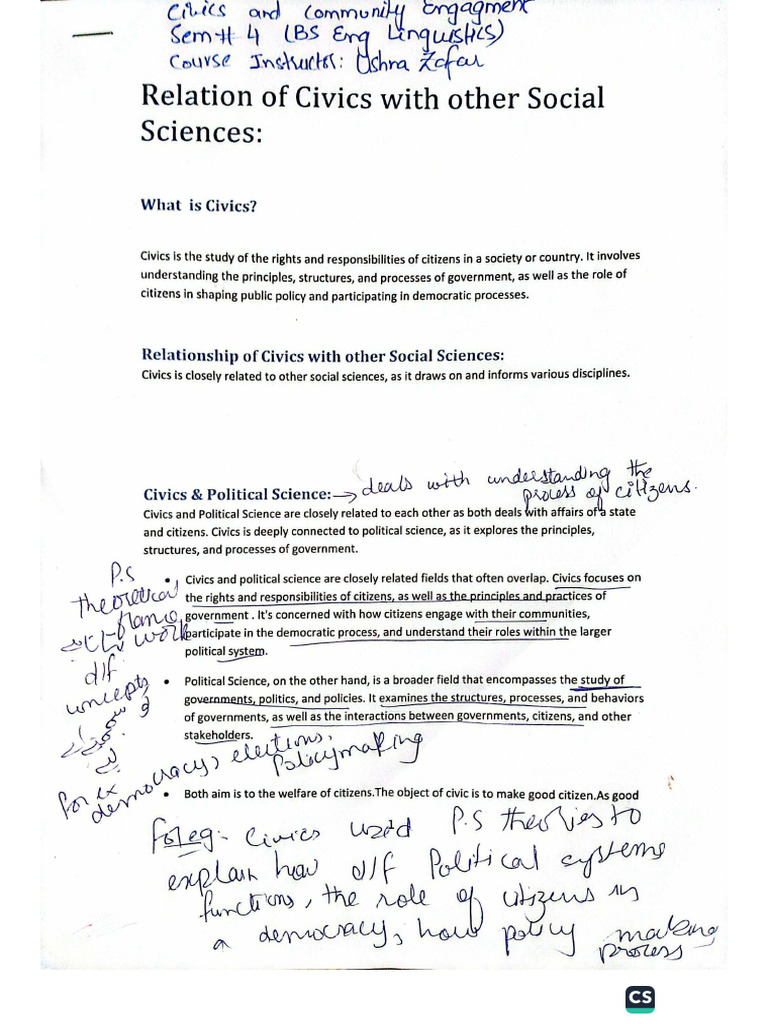 Civics and Community Engagment
Sem# 4 (BS Eng Linguistics)
Course Instructor: Ushna Zafar
Relation of Civics with other Social
Sciences:
What is Civics?
Civics is the study of the rights and responsibilities of citizens in a society or country. It involves
understanding the principles, structures, and processes of government, as well as the role of
citizens in shaping public policy and participating in democratic processes.
Relationship of Civics with other Social Sciences:
Civics is closely related to other social sciences, as it draws on and informs various disciplines.
Civics & Political Science: → deals with understanding the
process of citizens.
Civics and Political Science are closely related to each other as both deals with affairs of a state
and citizens. Civics is deeply connected to political science, as it explores the principles,
structures, and processes of government.
P.S
theoretical
frame
work
d/f
concepts
سمجھنے
کے
لیے
For ex
democracy, elections,
Policymaking
• Civics and political science are closely related fields that often overlap. Civics focuses on
the rights and responsibilities of citizens, as well as the principles and practices of
government . It's concerned with how citizens engage with their communities,
participate in the democratic process, and understand their roles within the larger
political system.
• Political Science, on the other hand, is a broader field that encompasses the study of
governments, politics, and policies. It examines the structures, processes, and behaviors
of governments, as well as the interactions between governments, citizens, and other
stakeholders.
• Both aim is to the welfare of citizens.The object of civic is to make good citizen.As good
For eg:- Civics used P.S theories to
explain how d/f Political systems
functions, the role of citizens in
a democracy, how policy making
process
CS